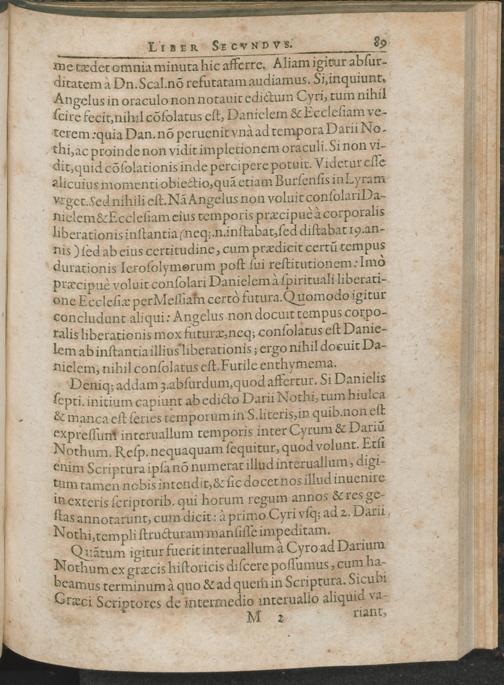 LIBER SECVNDVS. 89
me tædet omnia minuta hic afferre. Aliam igitur absur-
ditatem à Dn. Scal. nõ refutatam audiamus. Si, inquiunt,
Angelus in oraculo non notauit edictum Cyri, tum nihil
scire fecit, nihil cõsolatus est, Danielem & Ecclesiam ve-
terem: quia Dan. nõ peruenit vnà ad tempora Darii No-
thi, ac proinde non vidit impletionem oraculi. Si non vi-
dit, quid cõsolationis inde percipere potuit. Videtur esse
alicuius momenti obiectio, quã etiam Bursensis in Lyram
vrget. Sed nihili est. Nã Angelus non voluit consolari Da-
nielem & Ecclesiam eius temporis præcipuè à corporalis
liberationis instantia (neq;. n. instabat, sed distabat 19. an-
nis) sed ab eius certitudine, cum prædicit certũ tempus
durationis Ierosolymorum post sui restitutionem: Imò
præcipuè voluit consolari Danielem à spirituali liberati-
one Ecclesiæ per Messiam certò futura. Quomodo igitur
concludunt aliqui: Angelus non docuit tempus corpo-
ralis liberationis mox futuræ, neq; consolatus est Danie-
lem ab instantia illius liberationis; ergo nihil docuit Da-
nielem, nihil consolatus est. Futile enthymema.
Deniq; addam 3. absurdum, quod affertur. Si Danielis
septi. initium capiunt ab edicto Darii Nothi, tum hiulca
& manca est series temporum in S. literis, in quib. non est
expressum interuallum temporis inter Cyrum & Dariũ
Nothum. Resp. nequaquam sequitur, quod volunt. Etsi
enim Scriptura ipsa nõ numerat illud interuallum, digi-
tum tamen nobis intendit, & sic docet nos illud inuenire
in exteris scriptorib. qui horum regum annos & res ge-
stas annotarunt, cum dicit: à primo Cyri vsq; ad 2. Darii
Nothi, templi structuram mansisse impeditam.
Quãtum igitur fuerit interuallum à Cyro ad Darium
Nothum ex græcis historicis discere possumus, cum ha-
beamus terminum à quo & ad quem in Scriptura. Sicubi
Græci Scriptores de intermedio interuallo aliquid va-
M 2 riant,